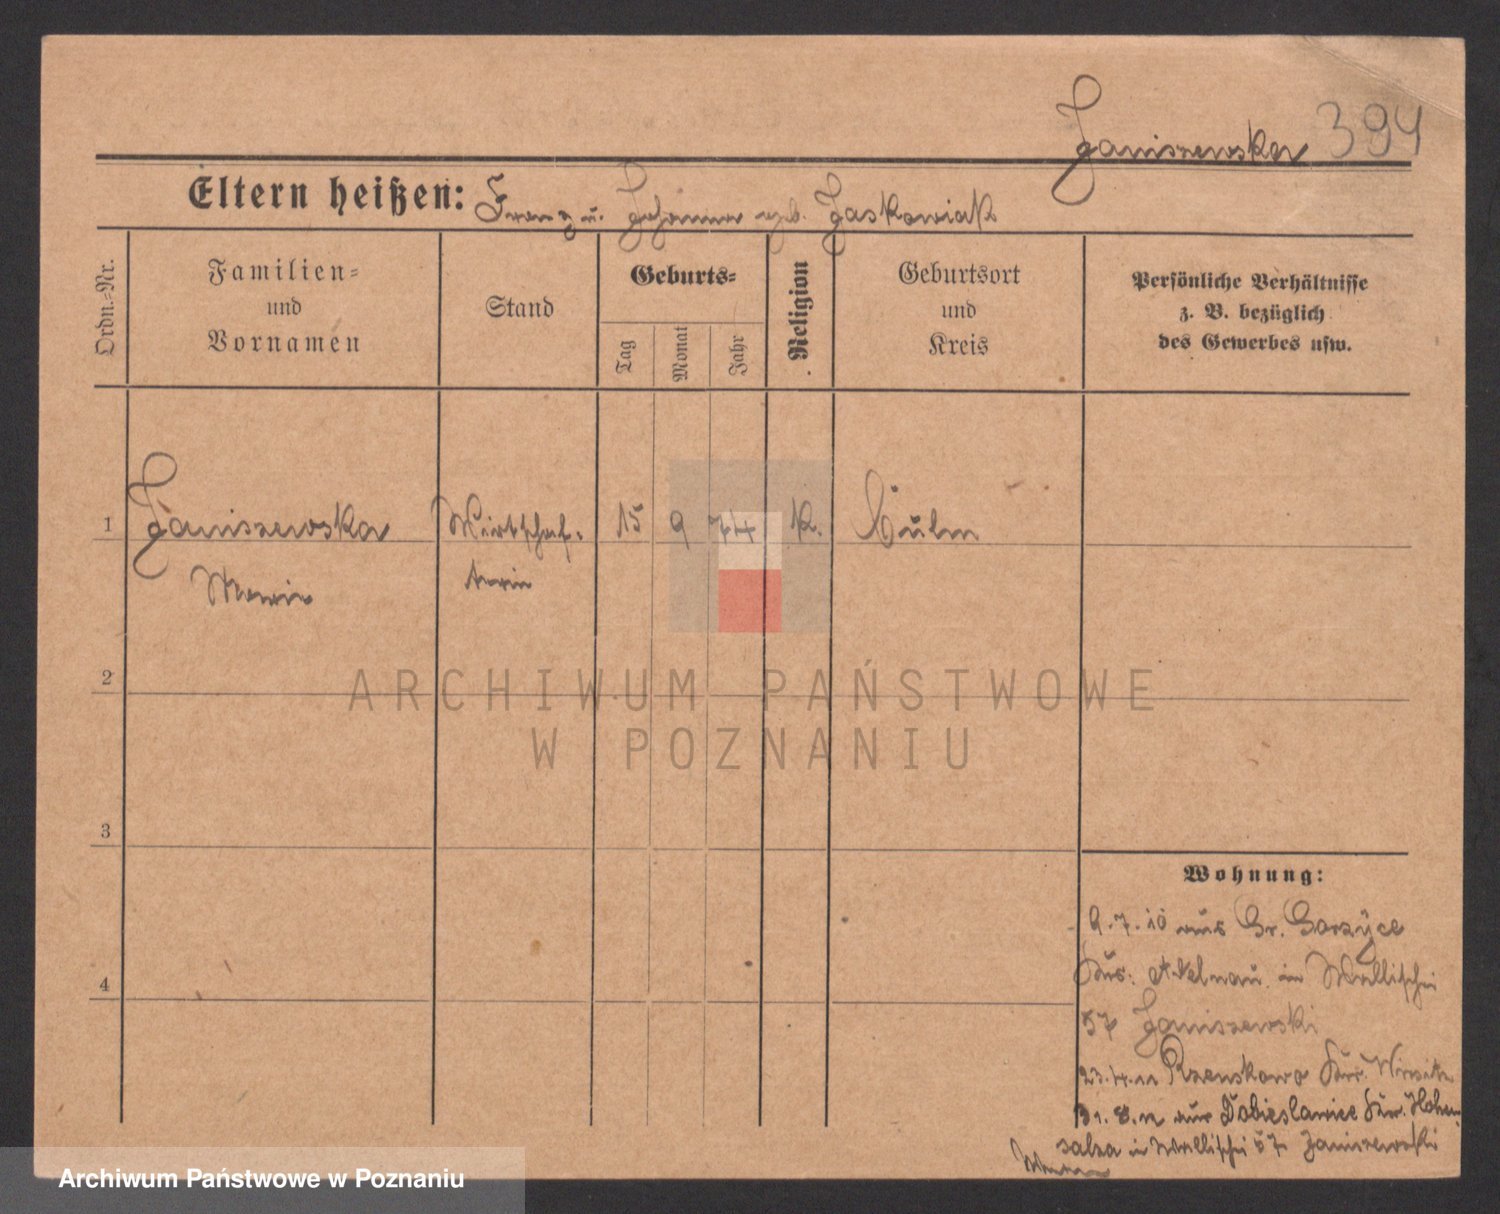 Janiszewska 394
Eltern heißen: Franz u. Johanna geb. Jaskowiak
Ordn.-Nr.
Familien-
und
Vornamen
Stand
Geburts-
Tag
Monat
Jahr
Religion
Geburtsort
und
Kreis
Persönliche Verhältnisse
z. B. bezüglich
des Gewerbes usw.
1 Janiszewska Wirtschaf- 15 9 74 K. Culm
Maria terin
2
ARCHIWUM PAŃSTWOWE
W POZNANIU
3
4
Wohnung:
9.7.10 aus Gr. Gorzyce
Krs. Adelnau in Wallischei
57 Janiszewski
23.4.11 Rzenskowo Kr. Wirsitz
31.8.12 aus Dobieslawice Kr. Hohen
salza in Wallischei 57 Janiszewski
Archiwum Państwowe w Poznaniu